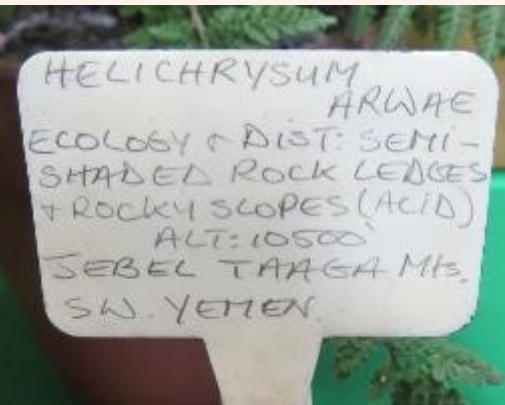 HELICHRYSUM
ARWAE
ECOLOGY + DIST: SEMI-
SHADED ROCK LEDGES
+ ROCKY SLOPES (ACID)
ALT: 10500'
JEBEL TAAGA Mts.
SW. YEMEN